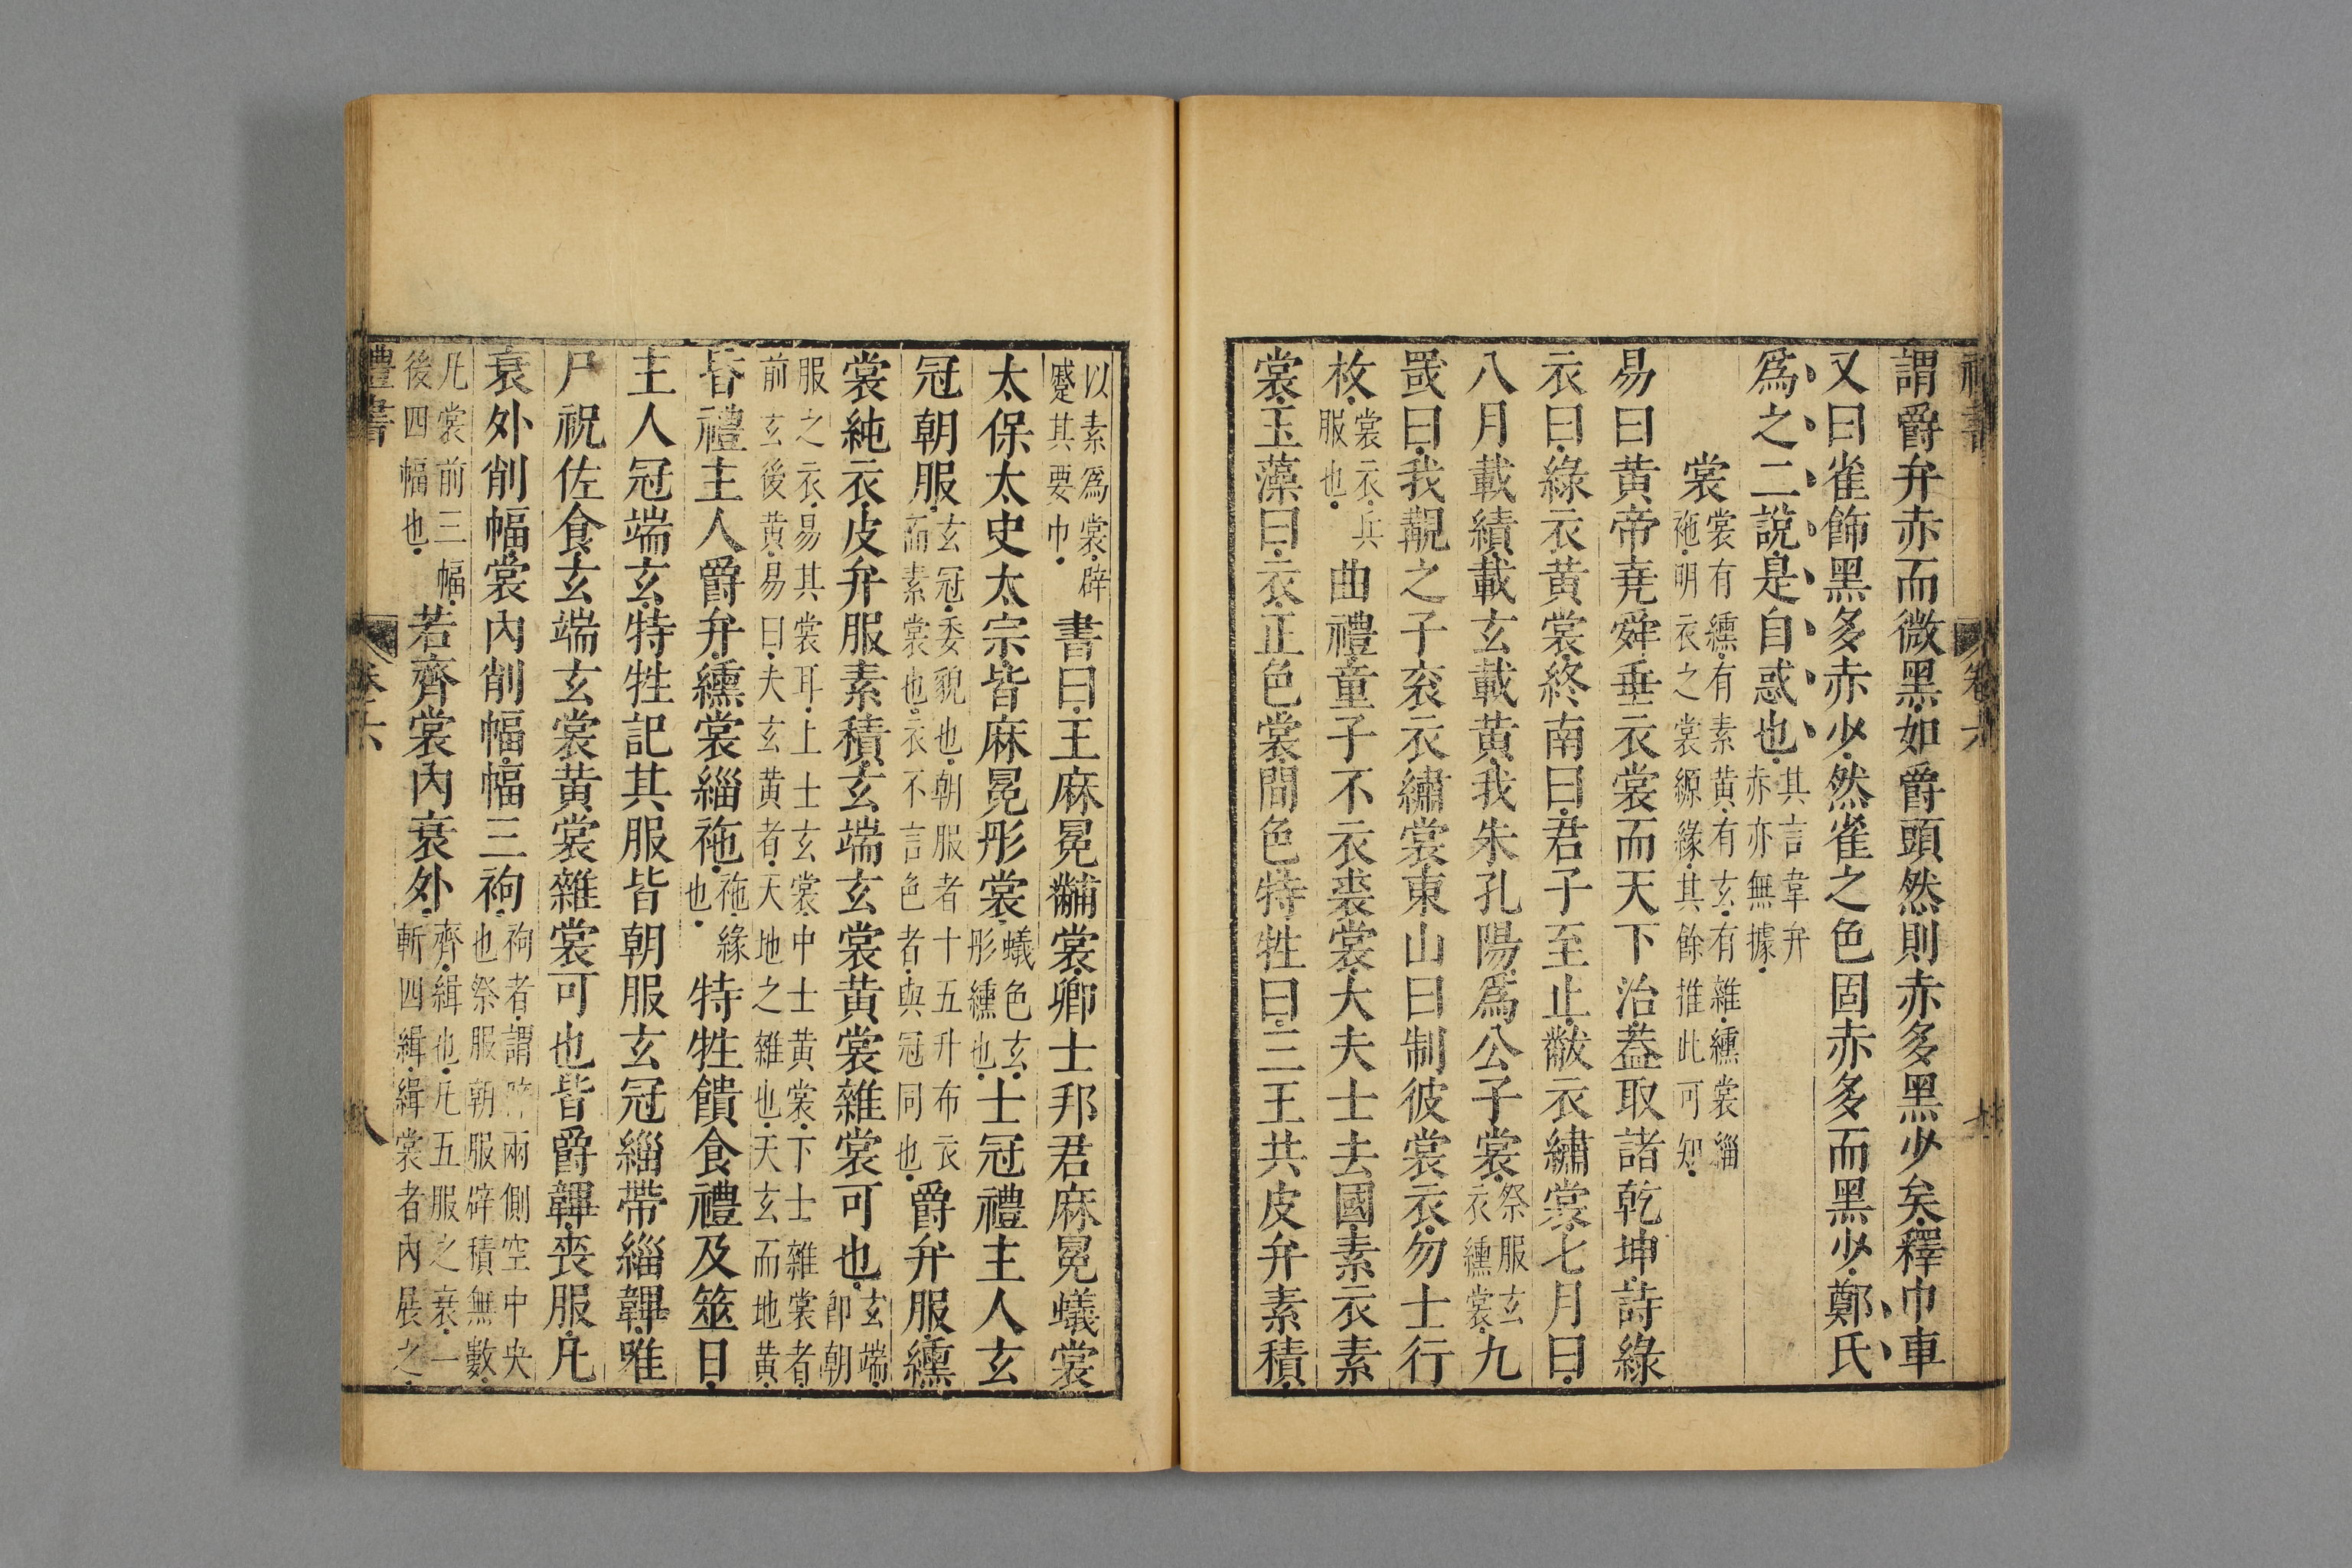 謂爵弁赤而微黑如爵頭然則赤多黑少矣釋巾車
又曰雀飾黑多赤少然雀之色固赤多而黑少鄭氏
爲之二說是自惑也其言韋弁赤亦無據
裳裳有纁有素黃有玄有雜纁裳緇袘明衣之裳縓緣其餘推此可知
易曰黃帝堯舜垂衣裳而天下治蓋取諸乾坤詩綠
衣曰綠衣黃裳終南曰君子至止黻衣繡裳七月曰
八月載績載玄載黃我朱孔陽爲公子裳祭服玄衣纁裳九
罭曰我覯之子衮衣繡裳東山曰制彼裳衣勿士行
枚裳衣兵服也曲禮童子不衣裘裳大夫士去國素衣素
裳玉藻曰衣正色裳間色特牲曰三王共皮弁素積
以素爲裳辟蹙其要巾書曰王麻冕黼裳卿士邦君麻冕蟻裳
太保太史太宗皆麻冕彤裳蟻色玄彤纁也士冠禮主人玄
冠朝服玄冠委貌也朝服者十五升布衣而素裳也衣不言色者與冠同也爵弁服纁
裳純衣皮弁服素積玄端玄裳黃裳雜裳可也玄端卽朝
服之衣易其裳耳上士玄裳中士黃裳下士雜裳者前玄後黃易曰夫玄黃者天地之雜也天玄而地黃
昏禮主人爵弁纁裳緇袘袘緣也特牲饋食禮及筮日
主人冠端玄特牲記其服皆朝服玄冠緇帶緇韠唯
尸祝佐食玄端玄裳黃裳雜裳可也皆爵韠喪服凡
衰外削幅裳內削幅幅三袧袧者謂辟兩側空中央也祭服朝服辟積無數
凡裳前三幅後四幅也若齊裳內衰外齊緝也凡五服之衰一斬四緝緝裳者內展之
禮書
卷六
八